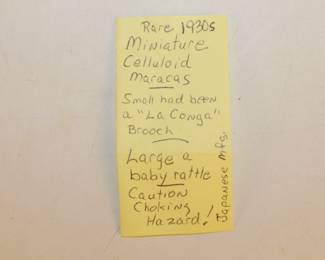 Rare 1930s
Miniature
Celluloid
Maracas
Small had been
a "La Conga"
Brooch
Large a
baby rattle
Caution
Choking
Hazard!
Japanese Mfg.